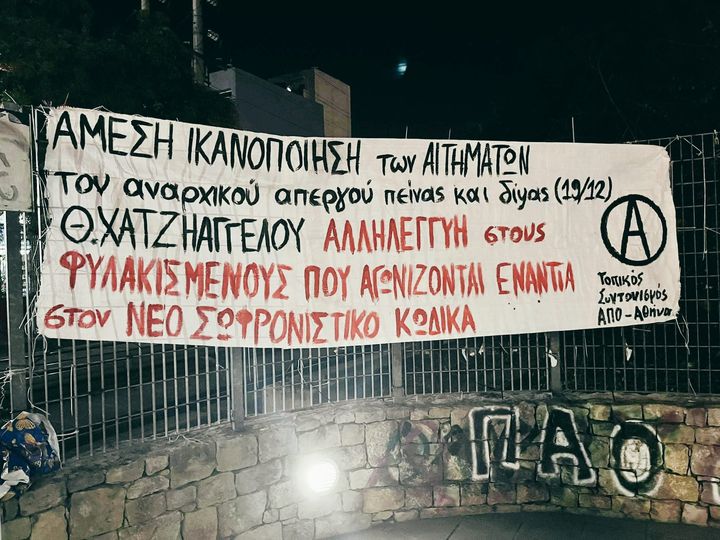 ΑΜΕΣΗ ΙΚΑΝΟΠΟΙΗΣΗ των ΑΙΤΗΜΑΤΩΝ
του αναρχικού απεργού πείνας και δίψας (19/12)
Θ.ΧΑΤΖΗΑΓΓΕΛΟΥ ΑΛΛΗΛΕΓΓΥΗ στους
ΦΥΛΑΚΙΣΜΕΝΟΥΣ ΠΟΥ ΑΓΩΝΙΖΟΝΤΑΙ ΕΝΑΝΤΙΑ
στον ΝΕΟ ΣΩΦΡΟΝΙΣΤΙΚΟ ΚΩΔΙΚΑ
Α
Τοπικός
Συντονισμός
ΑΠΟ-Αθήνα
ΠΑΟ